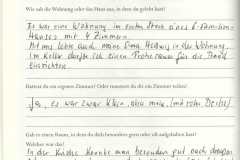 Wie sah die Wohnung oder das Haus aus, in dem du gelebt hast?
Es war eine Wohnung im ersten Stock eines 6-Familien-
Hauses mit 4 Zimmern.
Mit uns lebte auch meine Oma Hedwig in der Wohnung.
Im Keller durfte ich einen Proberaum für die Band
einrichten
Hattest du ein eigenes Zimmer? Oder musstest du dir ein Zimmer teilen?
Ja, es war zwar klein, aber mein
Gab es einen Raum, in dem du dich besonders gern oder oft aufgehalten hast?
Welcher war das?
In der Küche konnte man besonders gut nach draußen